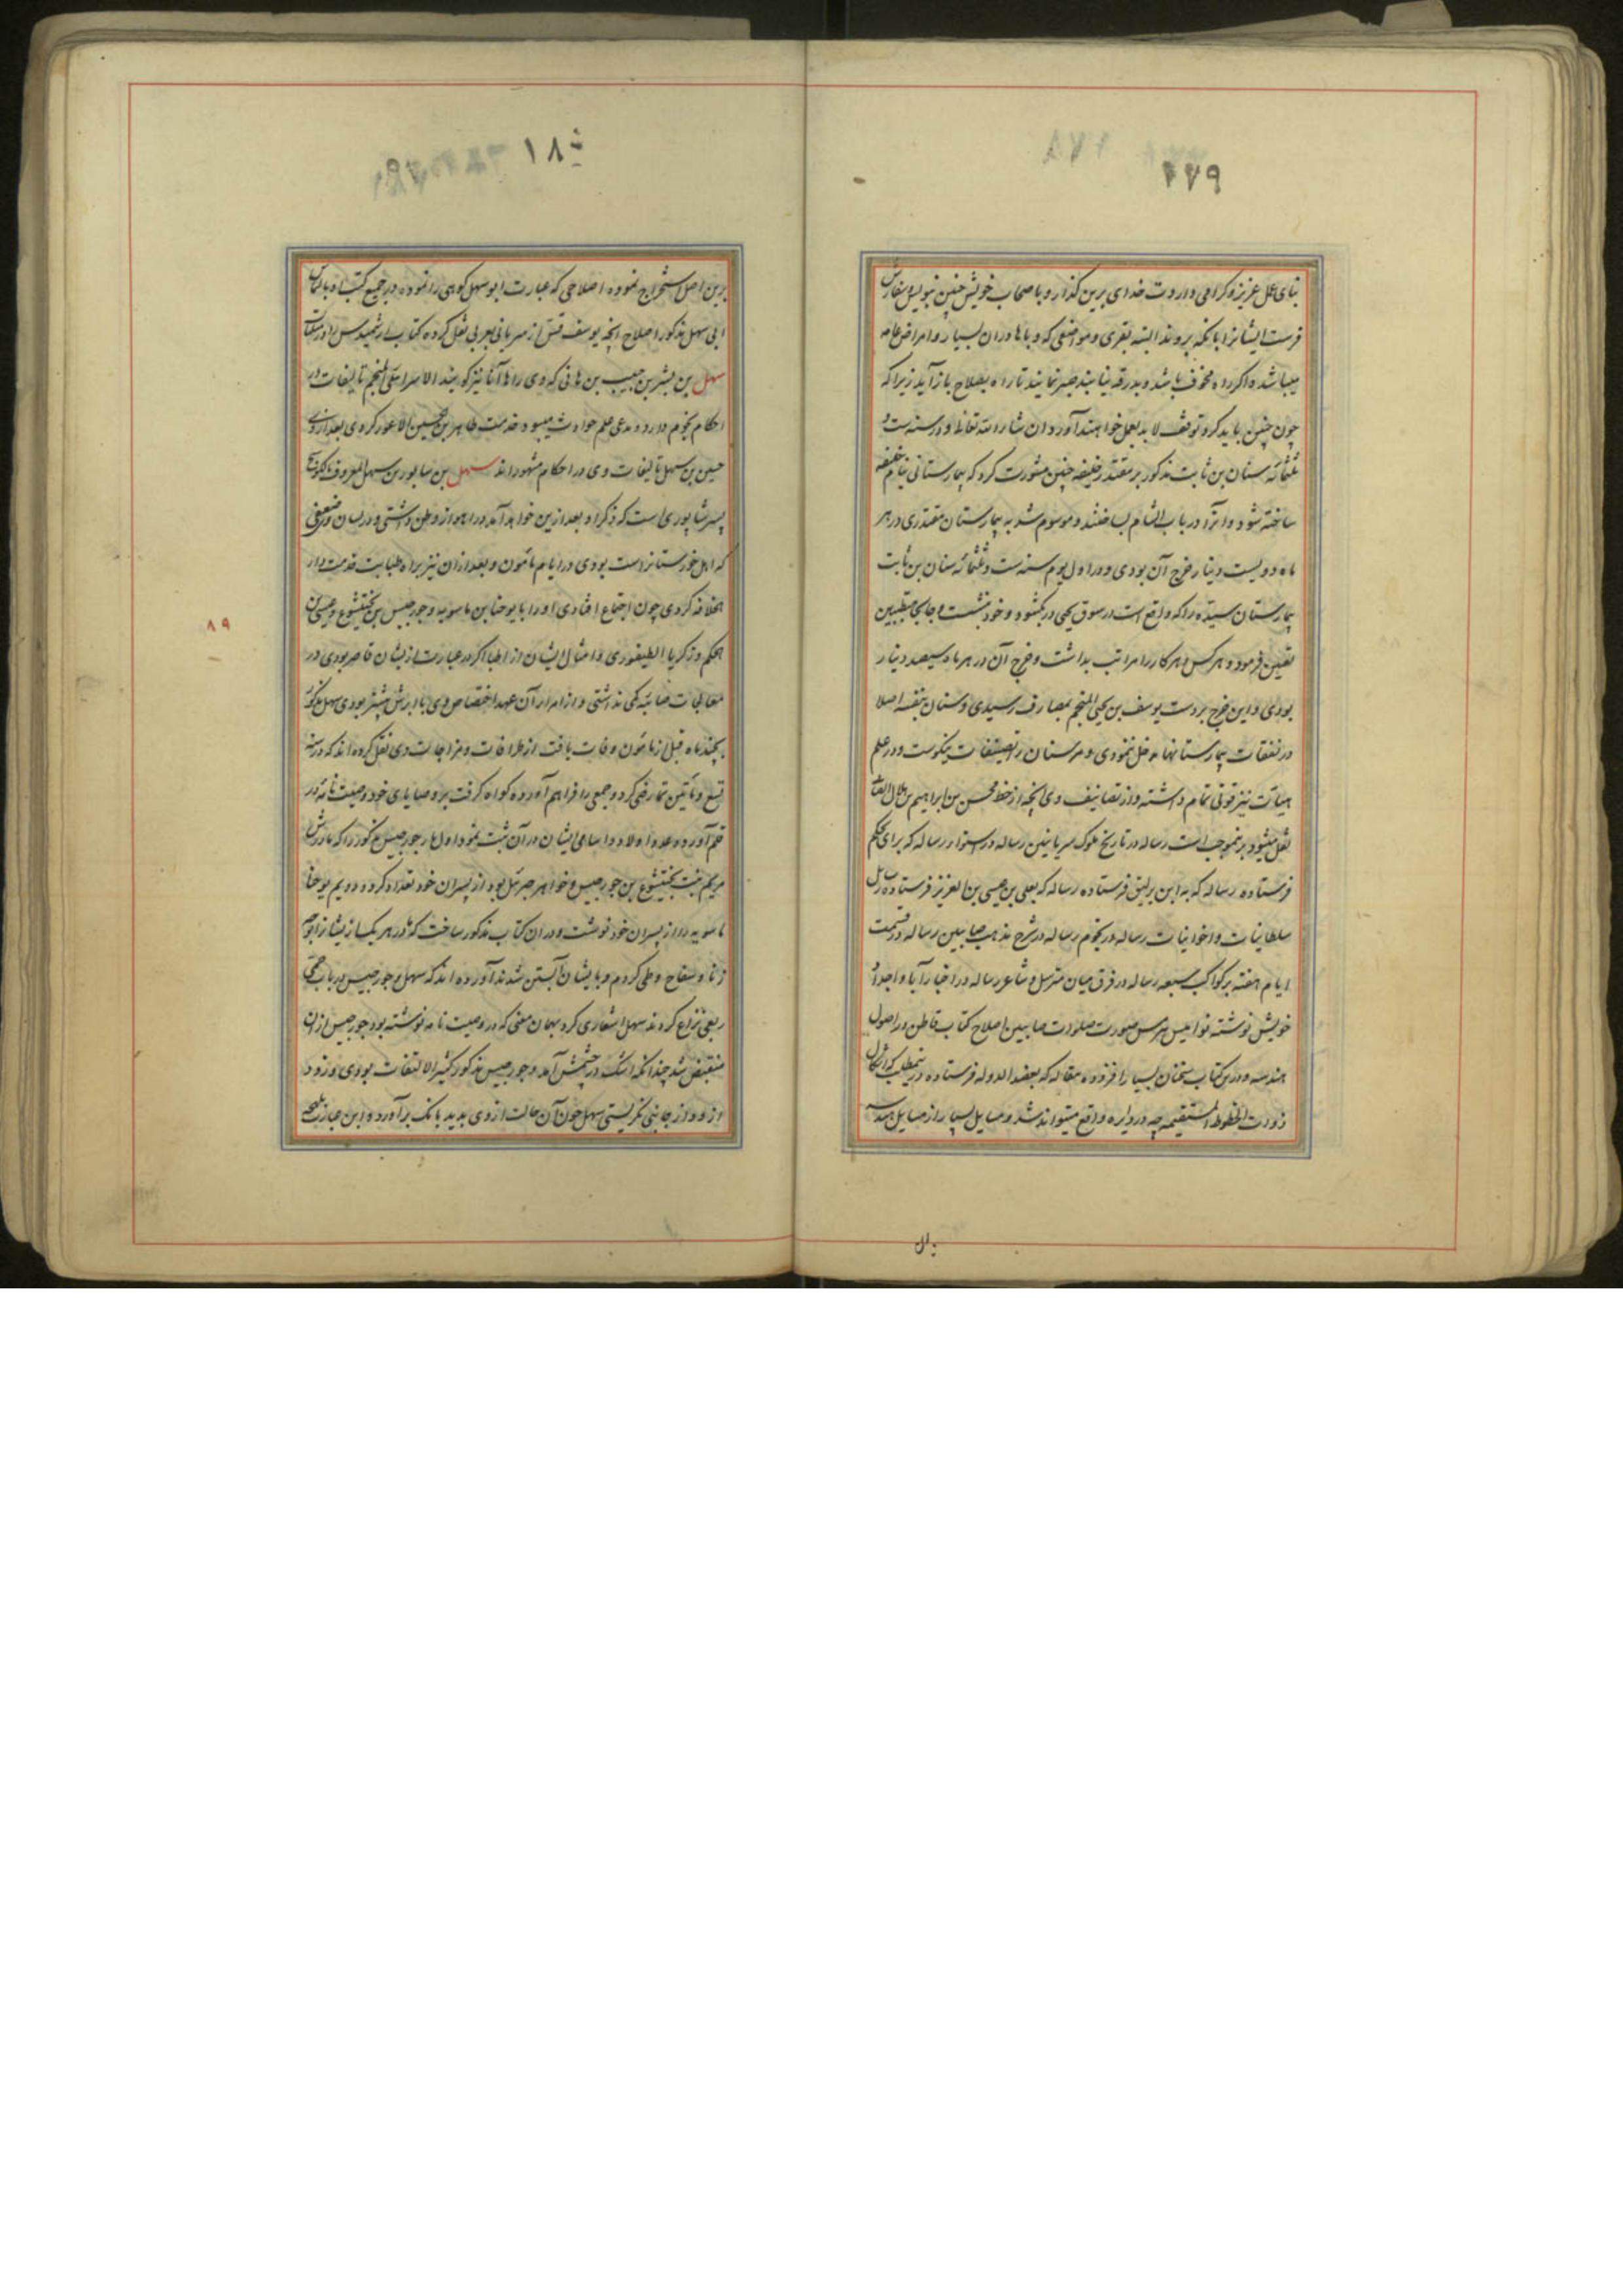 ۱۷۹
بنای عمل عزیز و کرامی دارد وت خدای برین کذار و با صحاب خویش چنین بنویس سفارش
فرست ایشانرا بانکه بروند البته بقری و مواضعی که وباها دران بسیار و امراض عامه
میباشد و اکر راه مخوف باشد و بدرقه نیابند صبر نمایند تا راه بصلاح باز آید زیرا که
چون چنین باید کرد و توقف لابد بعمل خواهند آورد ان شاء الله تعالی و در سنه ست و
ثلثمائه سنان بن ثابت مذکور بر مقتدر خلیفه چنین مشورت کرد که بیمارستانی بنام خلیفه
ساخته شود و آنرا در باب الشام بساختند و موسوم شد به بیمارستان مقتدری در هر
ماه دویست دینار خرج آن بودی و در اول یوم سنه ست و ثلثمائه سنان بن ثابت
بیمارستان سیده را که واقع است در سوق یحیی در بکشود و خود نشست و جابجا متطببین
تعیین فرمود و هر کس و هر کار را مراتب بداشت و خرج آن در هر ماه سیصد دینار
بودی و این خرج بر دست یوسف بن یحیی المنجم بمصارف رسیدی و سنان بنفسه اصلا
در نفقات بیمارستانها مدخل ننمودی و مر سنان را تصنیفات نیکوست و در علم
هیات نیز قوتی تمام داشته و از تصانیف وی آنچه از خط محسن بن ابراهیم بن هلال الصابی
نقل میشود برینموجب است رساله در تاریخ ملوک سریانیین رساله در استوا و رساله که برای بحکم
فرستاده رساله که به ابن رایق فرستاده رساله که بعلی بن عیسی بن العزیز فرستاده رسایل
سلطانیات و اخوانیات رساله در نجوم رساله در شرح مذهب صابیین رساله در قسمت
ایام هفته بر کواکب سبعه رساله در فرق میان مترسل و شاعر رساله در اخبار آبا و اجداد
خویش نوشته نوامیس هرمس صورت صلوات صابیین اصلاح کتاب فاطن در اصول
هندسه و درین کتاب سخنان بسیار افزوده مقاله که بعضد الدوله فرستاده درینمطلب که اشکال
ذوات الخطوط المستقیمه چه در دایره واقع میتواند شد و مسایل بسیار از مسایل هندسه
۱۸۰
برین اصل استخراج نموده اصلاحی که عبارت ابو سهل کوهی را نموده در جمیع کتب او بالتماس
ابی سهل مذکور اصلاح آنچه یوسف قس از سریانی بعربی نقل کرده کتاب ارشمیدس را در مثلثات
سهل بن بشر بن حبیب بن هانی که وی را هایا نیز کویند الاسرائیلی المنجم تالیفات در
احکام نجوم دارد و مدعی علم حوادث میبود خدمت طاهر بن حسین الاعور کردی بعد از وی
حسن بن سهل تالیفات وی در احکام مشهور اند سهل بن سابور بن سهل المعروف بالکوسج
پسر شاپوری است که ذکر او بعد ازین خواهد آمد در اهواز وطن داشتی و در لسان وی ضعفی
که اهل خوزستانراست بودی در ایام مامون و بعد ازان نیز براه طبابت خدمت دار
الخلافه کردی چون اجتماع افتادی او را با یوحنا بن ماسویه و جورجیس بن بختیشوع و عیسی بن
الحکم و زکریا الطیفوری و امثال ایشان از اطبا اکر در عبارت ازیشان قاصر بودی در
معالجات صناعیه کمی نداشتی و از امرا آن عهد اختصاص وی با ابرش بیشتر بودی سهل مذکور
بچند ماه قبل از مامون وفات یافت از ظرافات و مزاحات وی نقل کرده اند که در سنه
تسع و مائتین تمارض کرد و جمعی را فراهم آورده کواه کرفت بر وصایای خود وصیت نامه در
قلم آورد و عدد اولاد و اسامی ایشان در آن ثبت نمود اول مار جورجیس مذکور را که مادرش
مریم بنت بختیشوع بن جورجیس و خواهر جبرئیل بود از پسران خود تعداد کرد و دویم یوحنا
ماسویه را از پسران خود نوشت و دران کتاب مذکور ساخت که مادر هر یک از ایشانرا بوجه
زنا و سفاح وطی کردم و بایشان آبستن شدند آورده اند که سهل و جورجیس در باب حمی
ربعی نزاع کردند سهل اشعاری کرد بهمان معنی که در وصیت نامه نوشته بود جورجیس ازان
منقبض شد چندانکه اشک در چشمش آمد و جورجیس مذکور کثیر الالتفات بودی و زود
از و و از جانبی نکریستی سهل چون آن حالت از وی بدید بانک بر آورد و این عبارت
۸۹